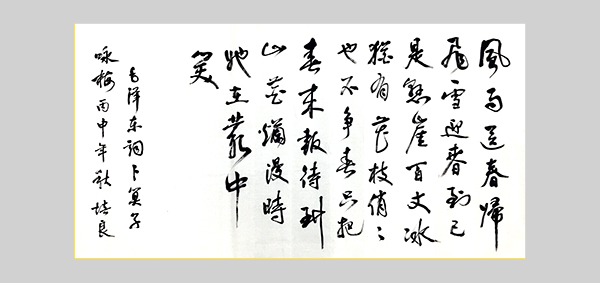 風雨送春歸
飛雪迎春到已
是懸崖百丈冰
猶有花枝俏〻
也不争春只把
春来報待到
山花爛漫時
她在叢中
笑
毛泽东词卜算子
咏梅丙申年秋培良